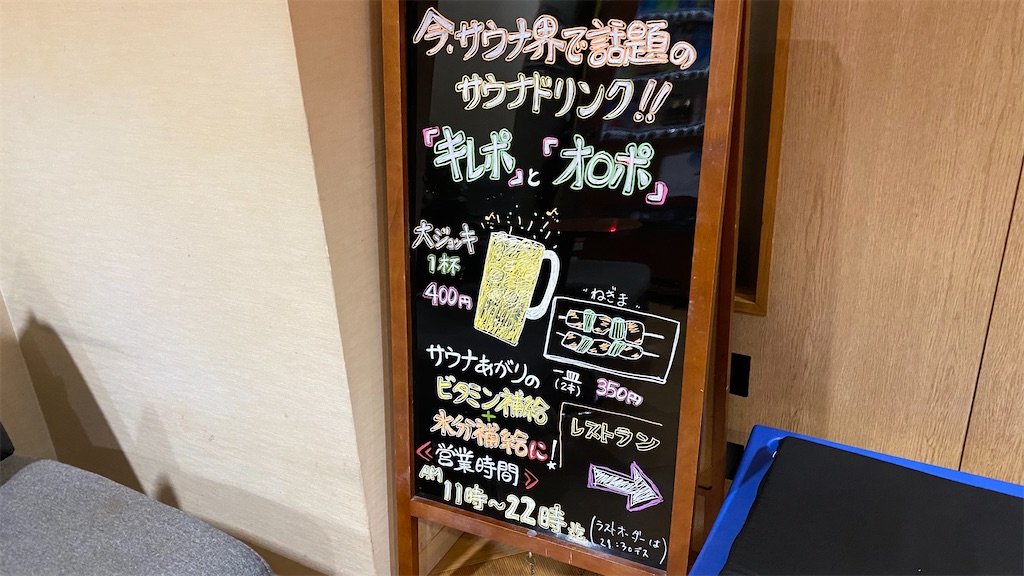 今、サウナ界で話題の
サウナドリンク!!
『キレポ』と『オロポ』
大ジョッキ
1杯
400円
ねぎま
一皿
(2本)
350円
サウナあがりの
ビタミン補給
+
水分補給に!
レストラン
《営業時間》
AM
11時~22時迄
(ラストオーダーは
21:30デス)